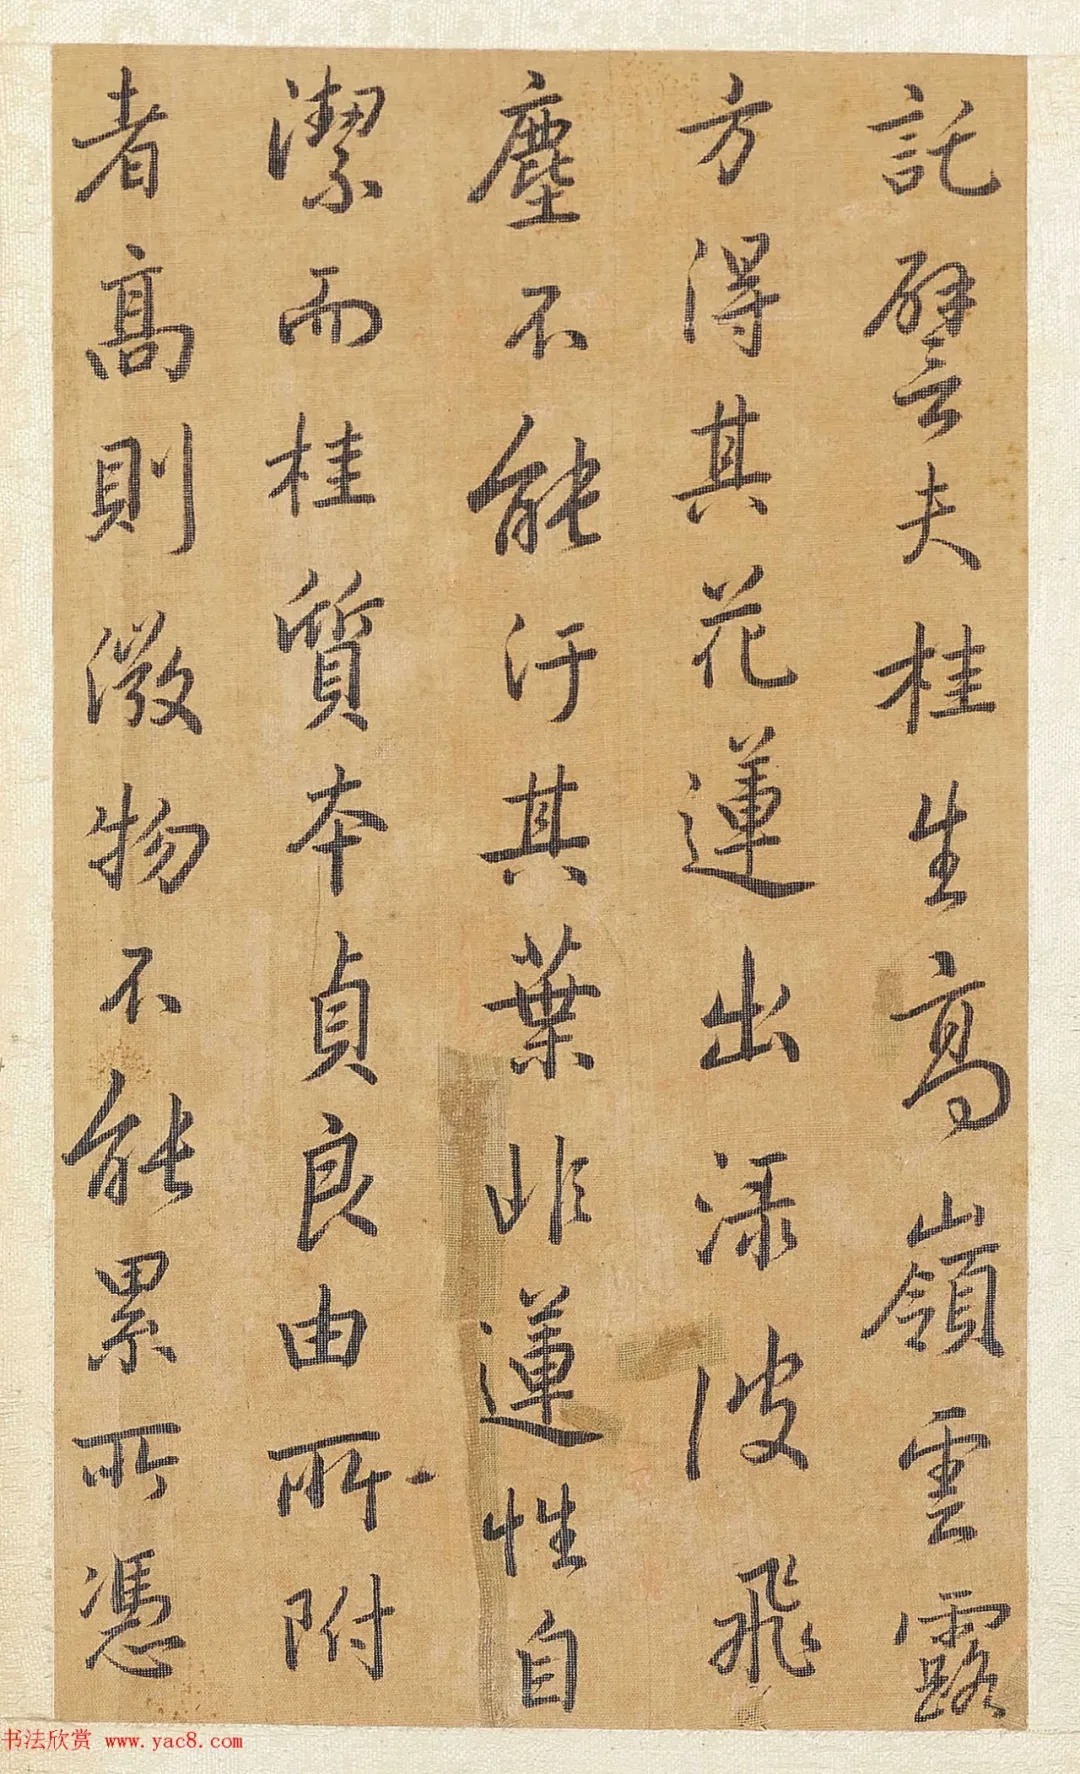 託譬夫桂生高嶺雲露
方得其花蓮出渌波飛
塵不能汙其葉非蓮性自
潔而桂質本貞良由所附
者高則微物不能累所憑
书法欣赏 www.yac8.com